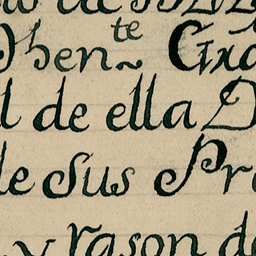 de
Then.te Gra
l de ella D
de Sus Pr
y rason de